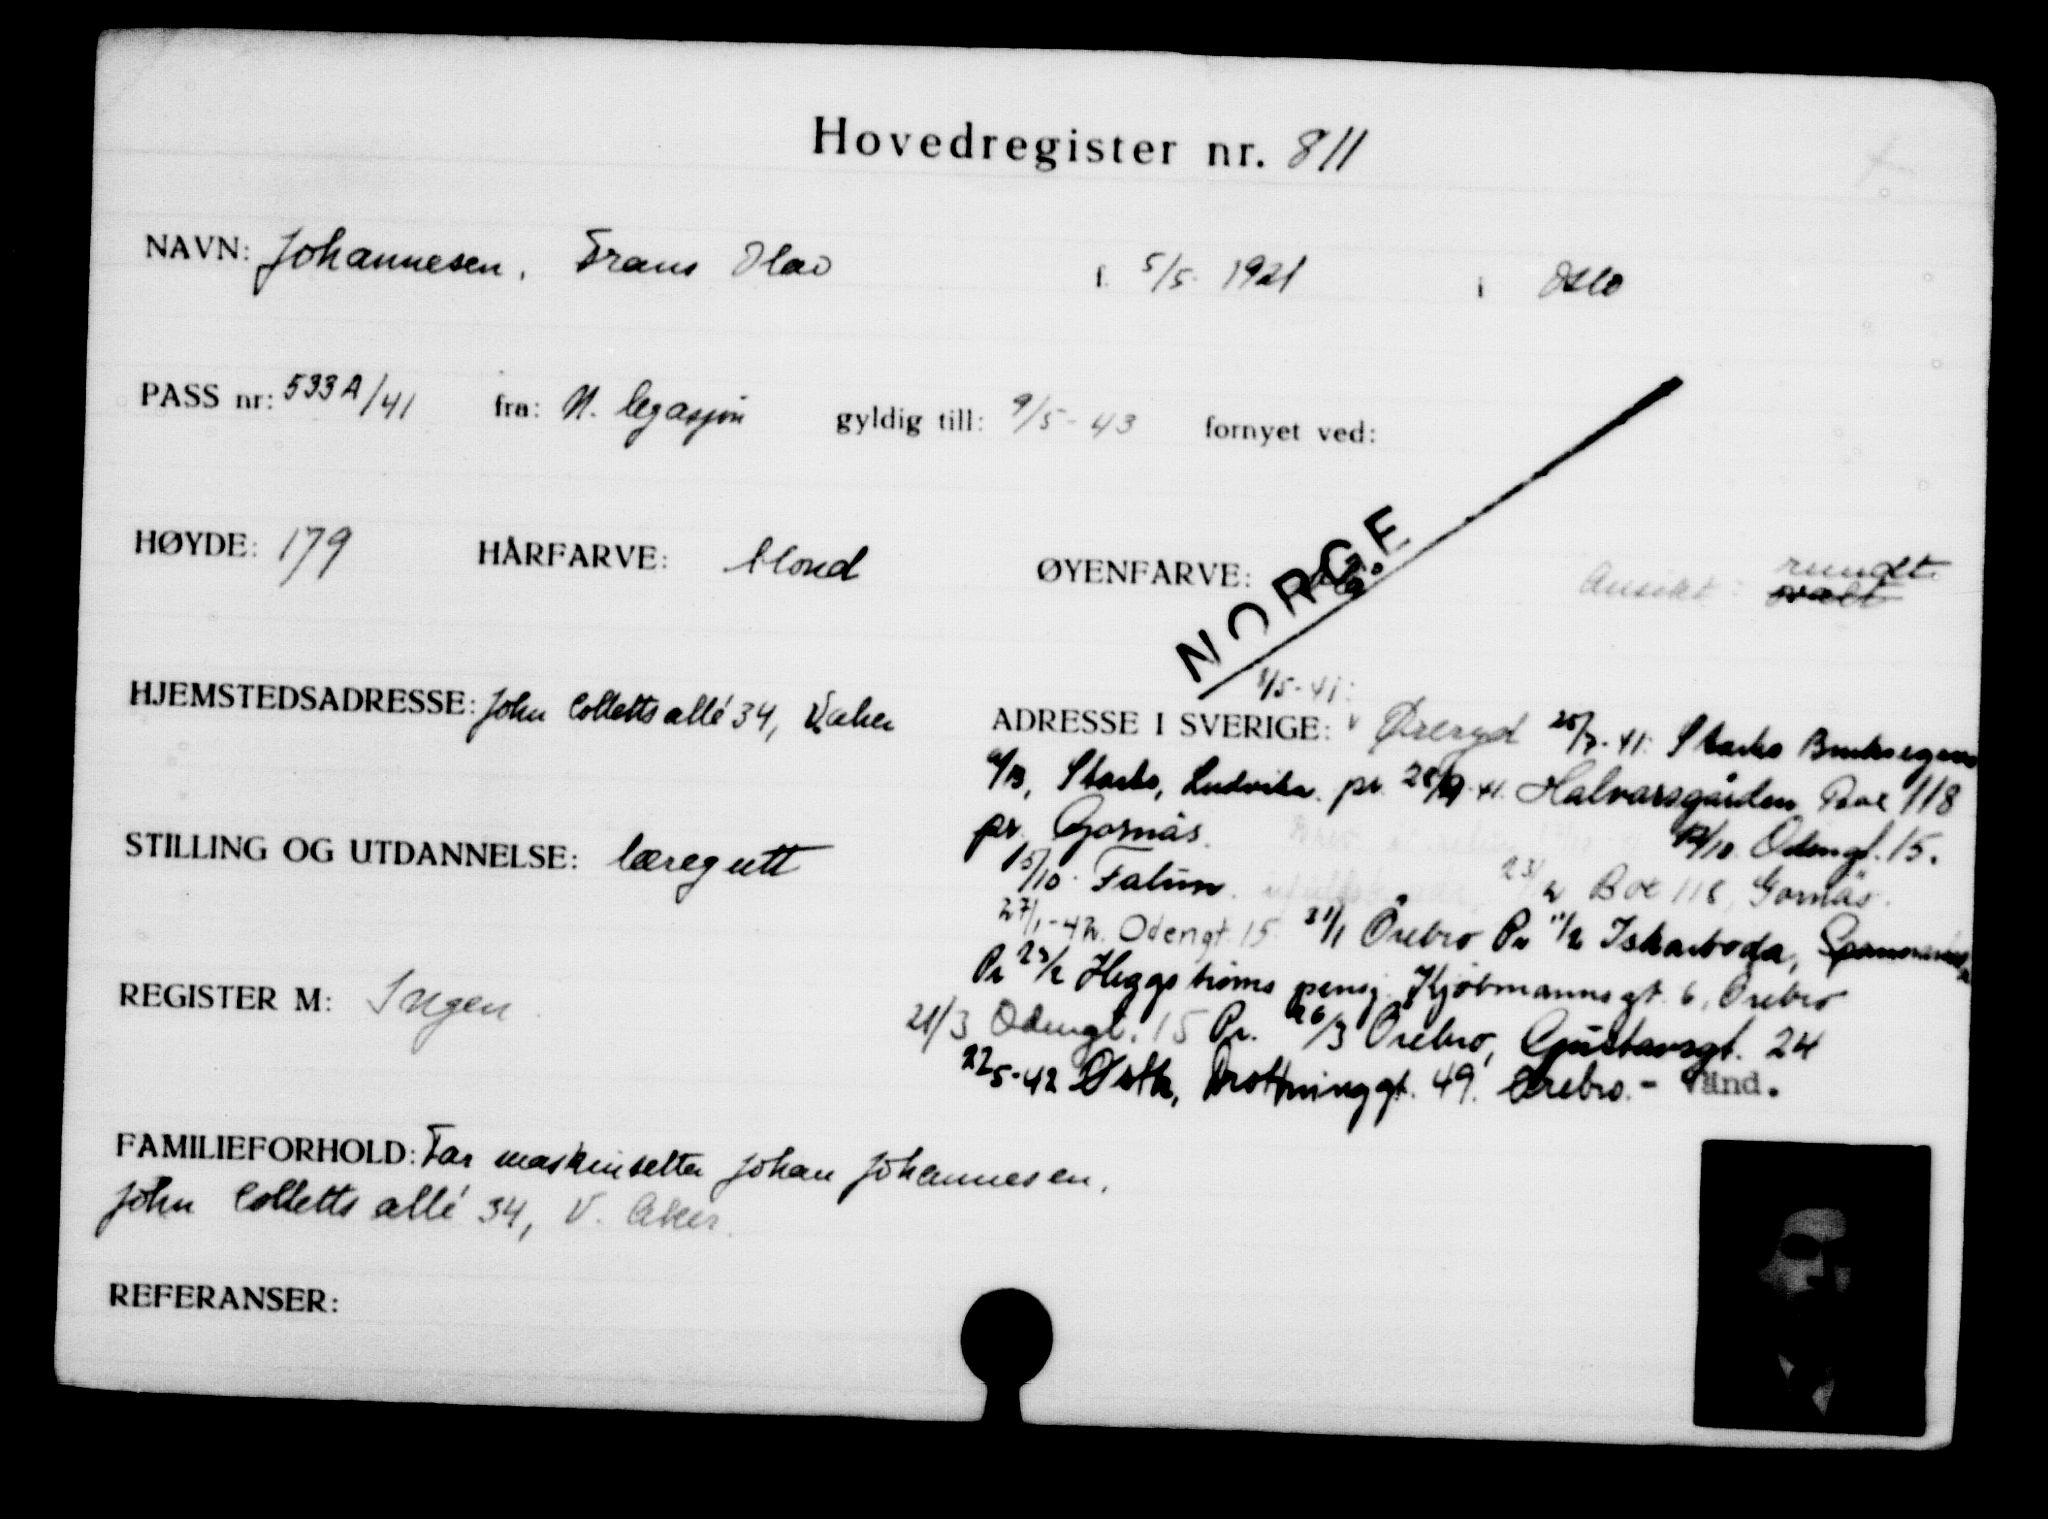 Hovedregister nr. 811
NAVN: Johannesen, Frans Olav f. 5/5. 1921 i Oslo
PASS nr: 533A/41 fra: N. legasjon gyldig till: 9/5-43 fornyet ved:
HØYDE: 179 HÅRFARVE: blond ØYENFARVE: blå Ansikt: rundt ovalt
NORGE
HJEMSTEDSADRESSE: John Colletts allé 34, V. Aker
ADRESSE I SVERIGE: 1/5-41: Øreryd 25/7-41: Starbo Bruksegens
A/B, Starbo, Ludvika. pr. 28/9-41. Halvarsgården, Box 118
pr. Gornäs. 12/10. Odengt. 15.
STILLING OG UTDANNELSE: læregutt
15/10. Falun. 23/2 Box 118, Gornäs.
27/1-42. Odengt. 15 31/1 Örebro Pr 11/2 Iskarboda,
Pr 23/2 Heggströms pensj. Kjöbmannsgt. 6, Örebro
REGISTER M: Ingen
21/3 Odengt. 15 Pr. 26/3 Örebro, Gustavsgt. 24
22/5-42 Drottninggt. 49. Örebro.- Vänd.
FAMILIEFORHOLD: Far maskinsetter Johan Johannesen,
John Colletts allé 34, V. Aker.
REFERANSER: